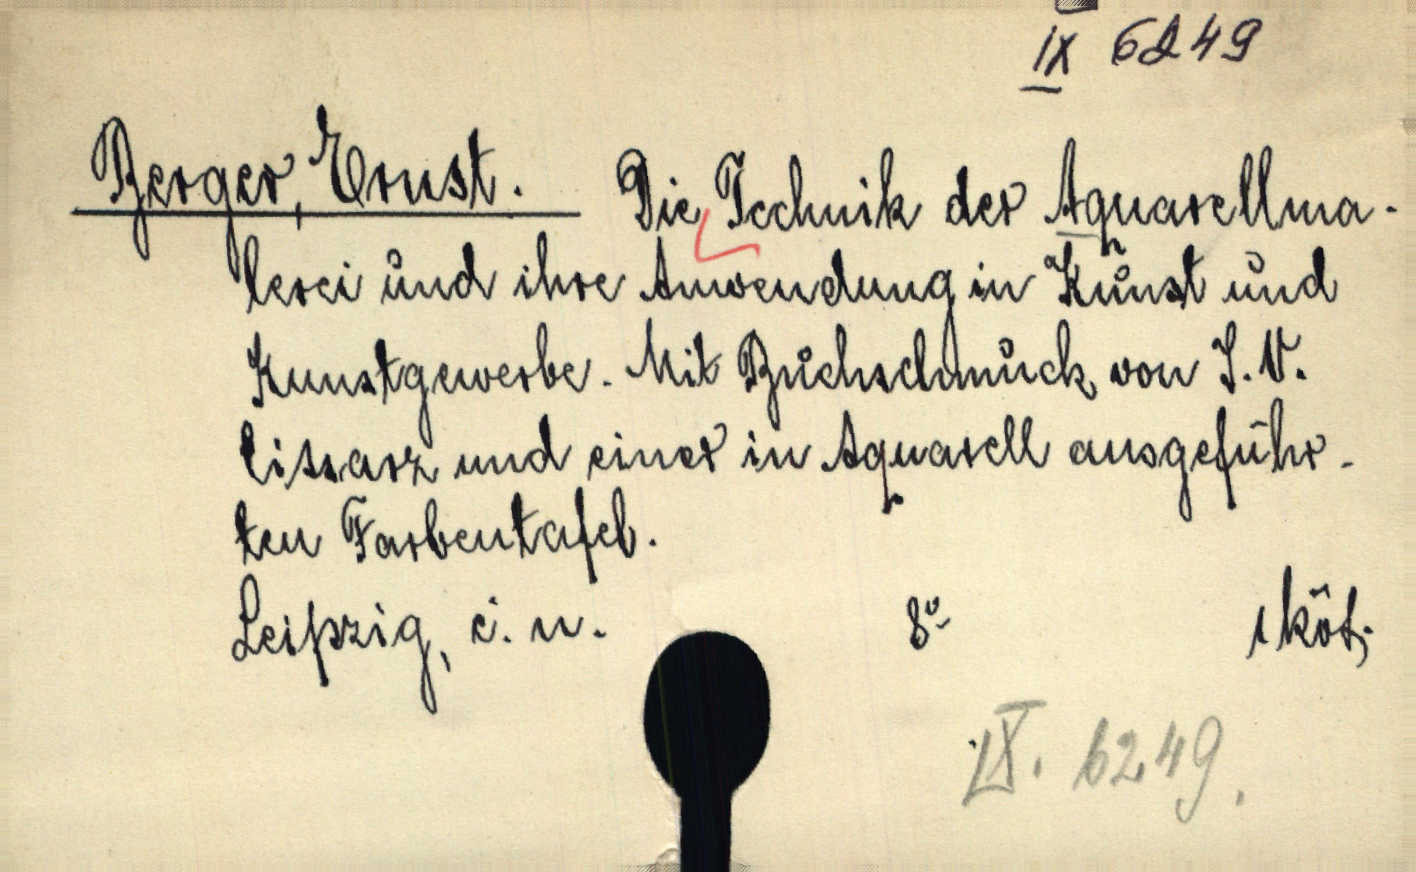 IX 6249
Berger, Ernst. Die Technik der Aquarellma-
lerei und ihre Anwendung in Kunst und
Kunstgewerbe. Mit Buchschmuck von J. V.
Cissarz und einer in Aquarell ausgeführ-
ten Farbentafel.
Leipzig, é. n. 8º 1 köt.
IX. 6249.